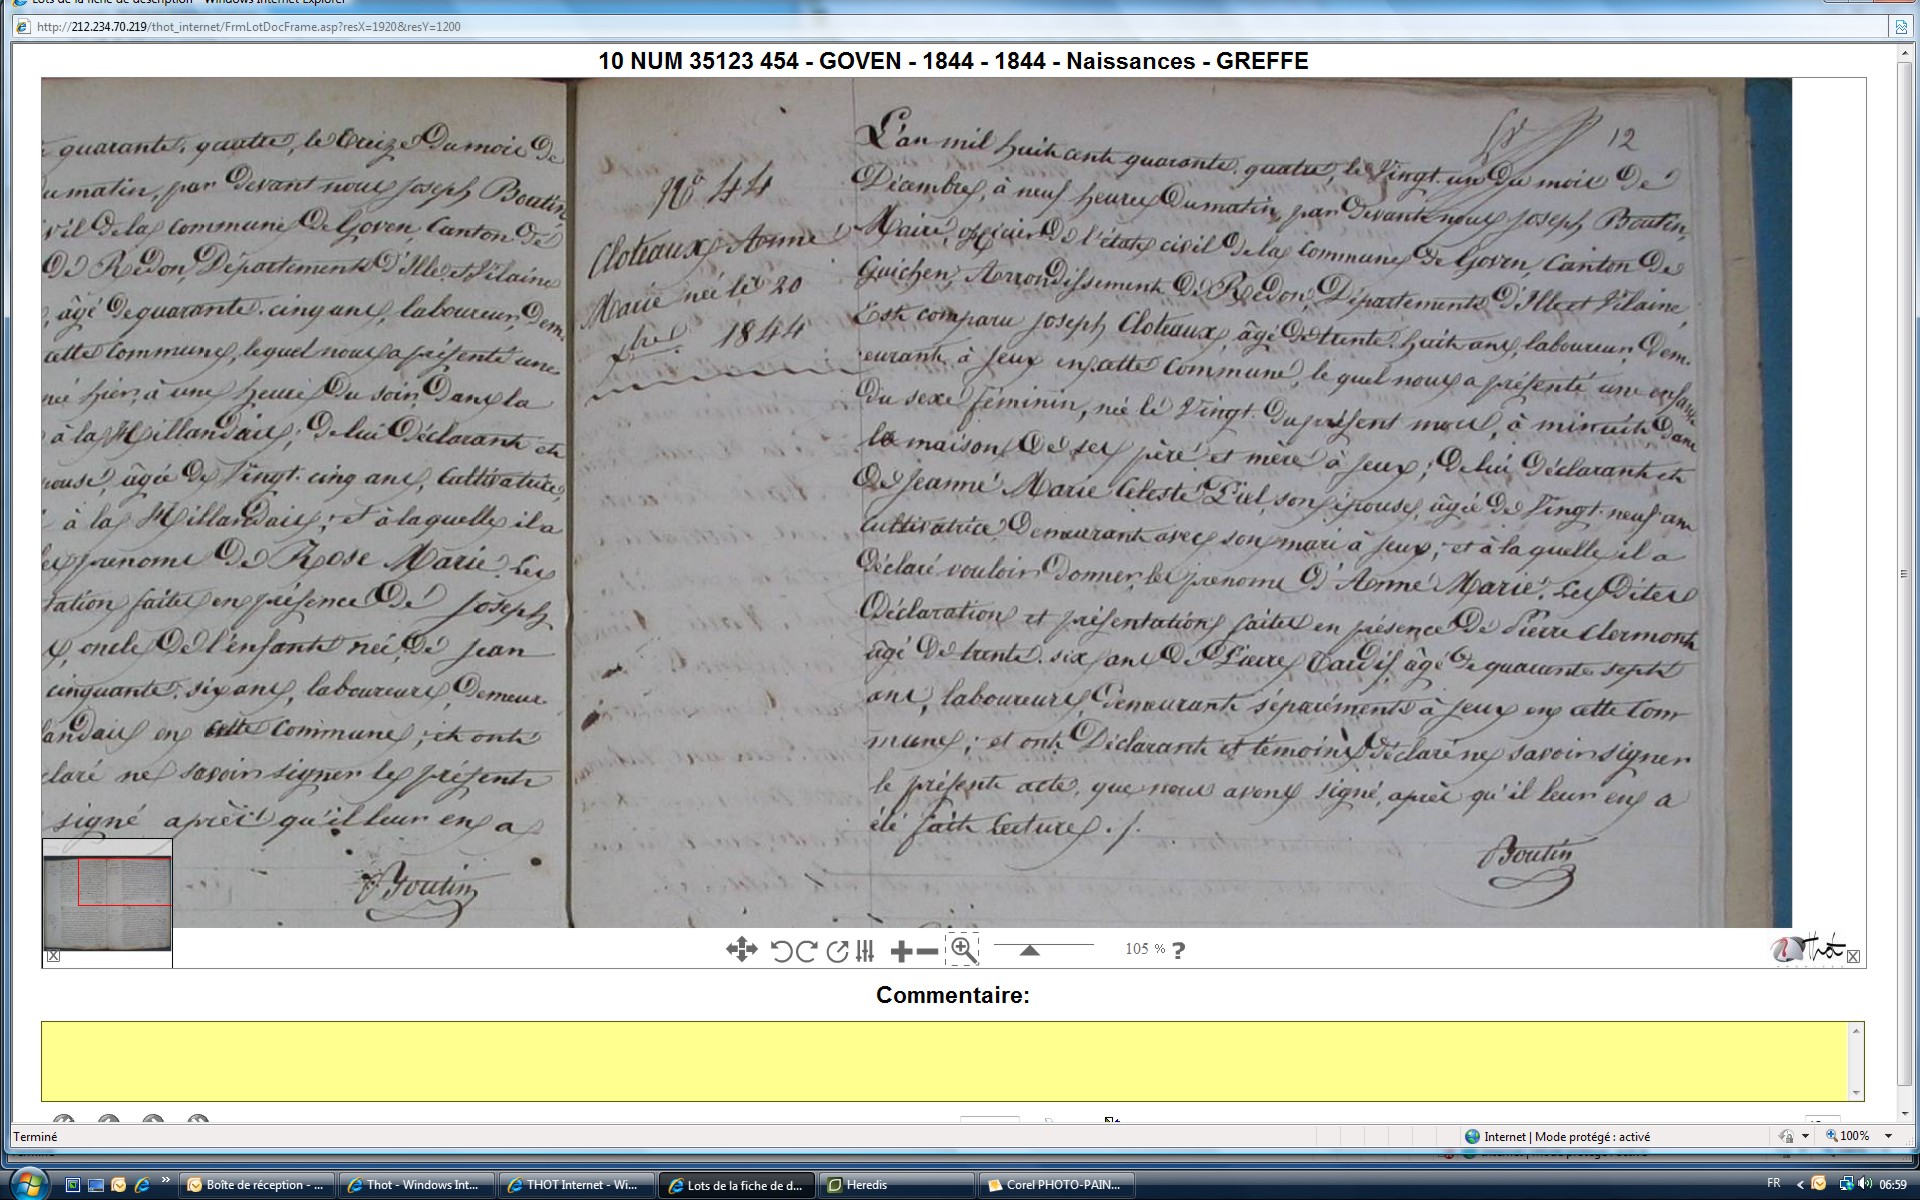 Lots de la fiche de description - Windows Internet Explorer
http://212.234.70.219/thot_internet/FrmLotDocFrame.asp?resX=1920&resY=1200
10 NUM 35123 454 - GOVEN - 1844 - 1844 - Naissances - GREFFE
quarante. quatre, le treize du mois de
du matin, par devant nous joseph Boutin,
civil de la commune de Goven, Canton de
de Redon, Département d'Ille et Vilaine
, âgé de quarante. cinq ans, laboureur, dem.
cette commune, lequel nous a présenté une
née hier, à une heure du soir, dans la
à la Millandais; de lui déclarant et
épouse, âgée de Vingt. cinq ans, Cultivatrice,
à la Millandais; et à laquelle il a
les prénoms de Rose Marie. Les
tation faites en présence de joseph
oncle de l'enfant née, de jean
cinquante. six ans, laboureurs, demeur.
landais en cette commune; et ont
claré ne savoir signer le présent
signé après qu'il leur en a
Boutin
No 44
Cloteaux Anne
Marie née le 20
xbre 1844
12
L'an mil huit cent quarante. quatre, le Vingt. un du mois de
Décembre, à neuf heures du matin, par devant nous joseph Boutin,
Maire, officier de l'état civil de la commune de Goven, Canton de
Guichen, Arrondissement de Redon, Département d'Ille et Vilaine,
Est comparu joseph Cloteaux, âgé de trente. huit ans, laboureur, dem.
eurant à jeux en cette commune, le quel nous a présenté une enfant
du sexe féminin, née le Vingt. du présent mois, à minuit, dans
la maison de ses père et mère à jeux; de lui déclarant et
de jeanne Marie Céleste Piel, son épouse, âgée de Vingt. neuf ans
cultivatrice, demeurant avec son mari à jeux; et à la quelle il a
déclaré vouloir donner les prénoms d'Anne Marie. Les dites
Déclaration et présentation faites en présence de Pierre Clermont
âgé de trente. six ans de Pierre Tardif, âgé de quarante sept
ans, laboureurs, demeurant séparément à jeux en cette Com
mune; et ont Déclarant et témoins déclaré ne savoir signer
le présent acte, que nous avons signé, après qu'il leur en a
été fait lecture ./.
Boutin
105 %
?
Thot
Commentaire:
Terminé
Internet | Mode protégé : activé
100%
Boîte de réception - ...
Thot - Windows Int...
THOT Internet - Wi...
Lots de la fiche de d...
Heredis
Corel PHOTO-PAIN...
FR
06:59